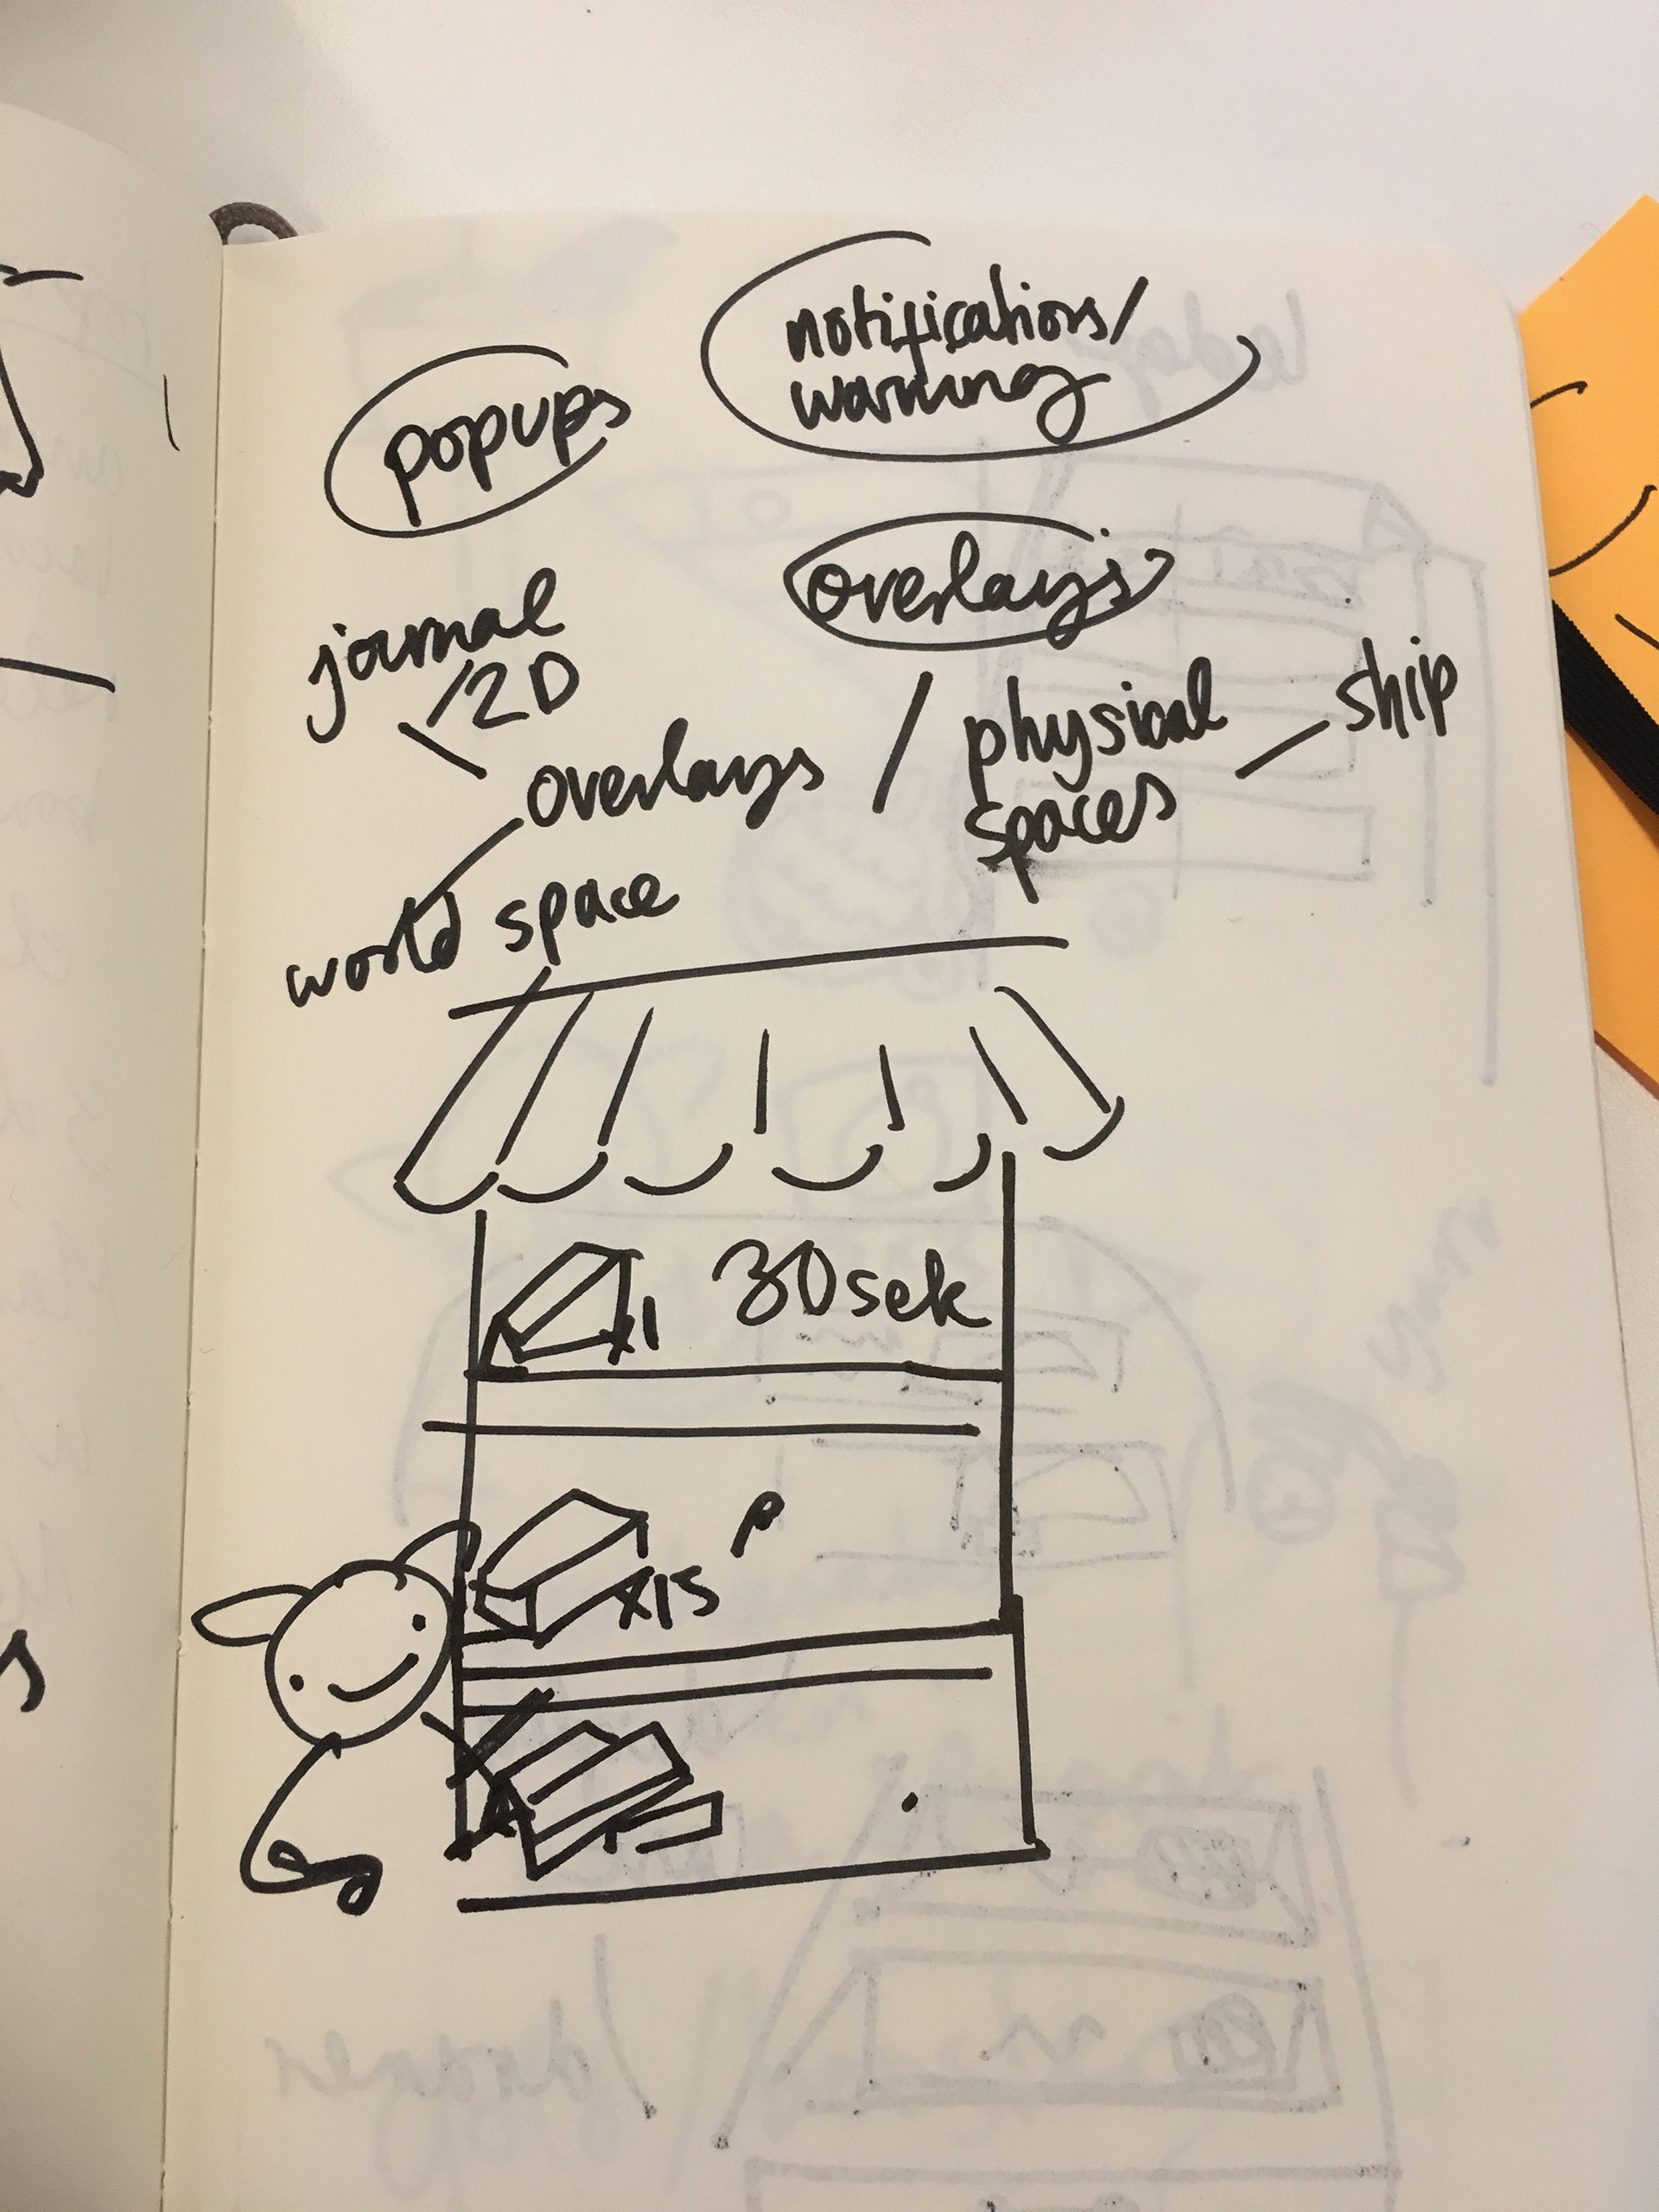 popups
notifications/
warning
overlays
journal
/2D
overlays / physical
spaces
ship
world space
x1 30sek
x15